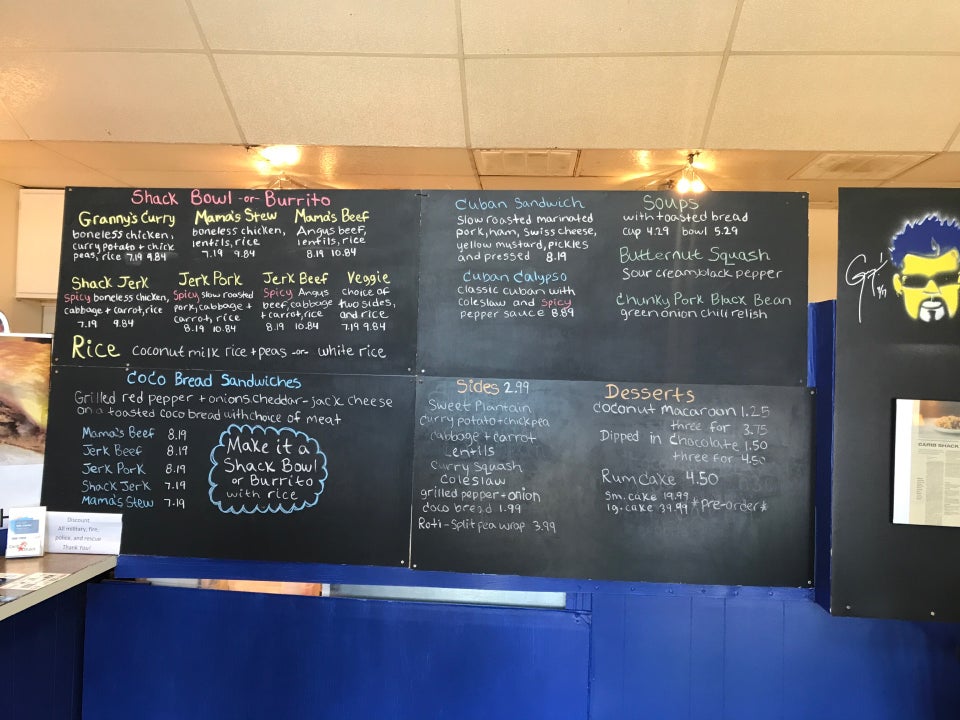 Shack Bowl -or- Burrito
Granny's Curry
boneless chicken,
curry potato + chick
peas, rice 7.19 9.84
Mama's Stew
boneless chicken,
lentils, rice
7.19 9.84
Mama's Beef
Angus beef,
lentils, rice
8.19 10.84
Shack Jerk
Spicy boneless chicken,
cabbage + carrot, rice
7.19 9.84
Jerk Pork
Spicy slow roasted
pork, cabbage +
carrot, rice
8.19 10.84
Jerk Beef
Spicy Angus
beef, cabbage
+ carrot, rice
8.19 10.84
Veggie
choice of
two sides,
and rice
7.19 9.84
Rice coconut milk rice + peas -or- white rice
Coco Bread Sandwiches
Grilled red pepper + onions cheddar-jack cheese
on a toasted coco bread with choice of meat
Mama's Beef 8.19
Jerk Beef 8.19
Jerk Pork 8.19
Shack Jerk 7.19
Mama's Stew 7.19
Make it a
Shack Bowl
or Burrito
with rice
Cuban Sandwich
Slow roasted marinated
pork, ham, Swiss cheese,
yellow mustard, pickles
and pressed 8.19
Cuban Calypso
classic cuban with
coleslaw and spicy
pepper sauce 8.89
Soups
with toasted bread
cup 4.29 bowl 5.29
Butternut Squash
Sour cream black pepper
Chunky Pork Black Bean
green onion chili relish
Sides 2.99
Sweet Plantain
curry potato + chickpea
cabbage + carrot
Lentils
Curry Squash
Coleslaw
grilled pepper + onion
coco bread 1.99
Roti - Split pea wrap 3.99
Desserts
coconut macaroon 1.25
three for 3.75
Dipped in chocolate 1.50
three for 4.50
Rum cake 4.50
sm. cake 19.99
lg. cake 39.99 *pre-order*
Discount
All military, fire,
police, and rescue
Thank You!
CARIB SHACK